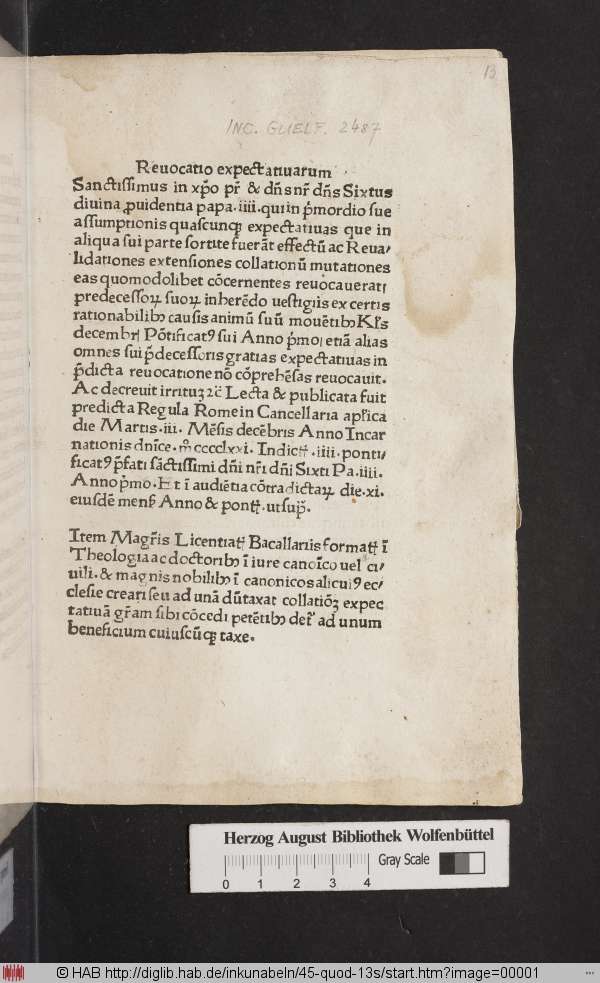 13
INC. GUELF. 2487
Reuocatio expectatiuarum
Sanctissimus in xp̄o pr̄ & dn̄s nr̄ dn̄s Sixtus
diuina ꝓuidentia papa .iiii. qui in p̄mordio sue
assumptionis quascunqꝫ expectatiuas que in
aliqua sui parte sortite fuerāt effectū ac Reua/
lidationes extensiones collationū mutationes
eas quomodolibet cōcernentes reuocauerat
predecessoꝝ suoꝝ inherēdo uestigiis ex certis
rationabilibꝫ causis animū suū mouētibꝫ Kl̄s
decembr̄ Pōtificatꝰ sui Anno p̄mo etiā alias
omnes sui p̄decessoris gratias expectatiuas in
p̄dicta reuocatione nō cōprehēsas reuocauit.
Ac decreuit irrituꝫ ⁊c̄ Lecta & publicata fuit
predicta Regula Rome in Cancellaria apl̄ica
die Martis .iii. Mēsis decēbris Anno Incar
nationis dn̄ice .m̊ cccclxxi. Indict̄ .iiii. ponti/
ficatꝰ p̄fati sāctissimi dn̄i nr̄i dn̄i Sixti Pa .iiii.
Anno p̄mo. Et ī audiētia cōtradictaꝝ die .xi.
eiusdē mens̄ Anno & pont̄ .ut sup̄.
Item Magr̄is Licentiat̄ Bacallariis format̄ ī
Theologia ac doctoribꝫ ī iure canoīco uel ci/
uili. & magnis nobilibꝫ ī canonicos alicuiꝰ ec/
clesie creari seu ad unā dūtaxat collatiōꝫ expec
tatiuā gr̄am sibi cōcedi petētibꝫ det̄ ad unum
beneficium cuiuscūqꝫ taxe.
Herzog August Bibliothek Wolfenbüttel
Gray Scale
0 1 2 3 4
© HAB http://diglib.hab.de/inkunabeln/45-quod-13s/start.htm?image=00001